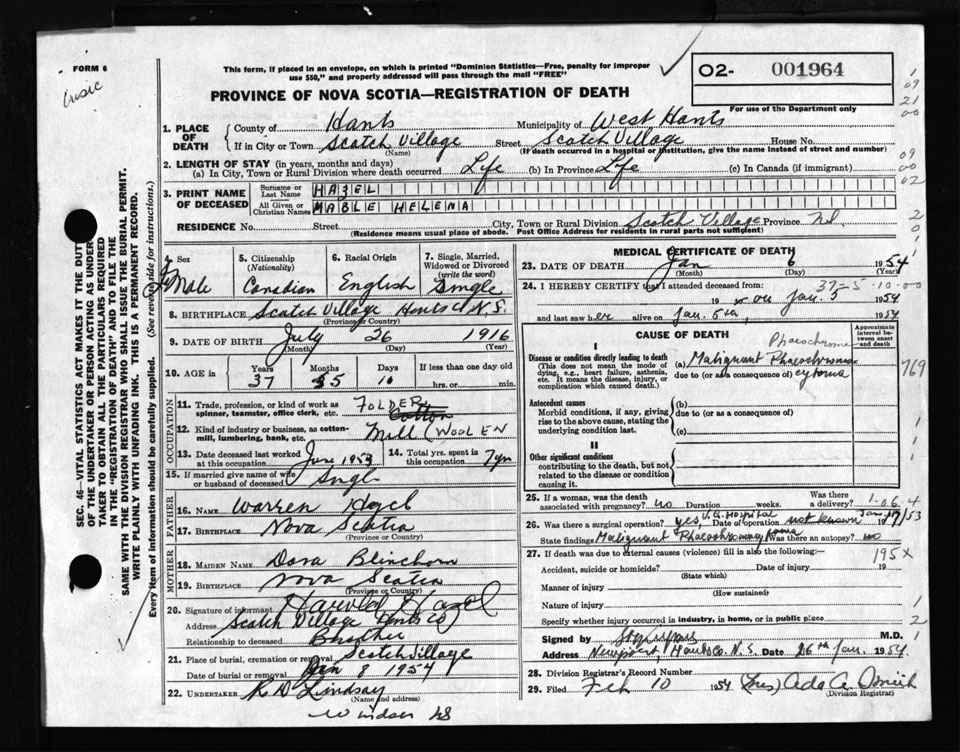 FORM 6
This form, if placed in an envelope, on which is printed "Dominion Statistics—Free, penalty for improper
use $50," and properly addressed will pass through the mail "FREE"
02- 001964
PROVINCE OF NOVA SCOTIA—REGISTRATION OF DEATH
For use of the Department only
1. PLACE OF DEATH
County of Hants Municipality of West Hants
If in City or Town Scotch Village Street Scotch Village House No.
(Name) (If death occurred in a hospital or institution, give the name instead of street and number)
2. LENGTH OF STAY (in years, months and days)
(a) In City, Town or Rural Division where death occurred Life (b) In Province Life (c) In Canada (if immigrant)
3. PRINT NAME OF DECEASED
Surname or Last Name HAZEL
All Given or Christian Names MABLE HELENA
RESIDENCE No. Street City, Town or Rural Division Scotch Village Province N.S
(Residence means usual place of abode. Post Office Address for residents in rural parts not sufficient)
SEC. 46—VITAL STATISTICS ACT MAKES IT THE DUTY
OF THE UNDERTAKER OR PERSON ACTING AS UNDER-
TAKER TO OBTAIN ALL THE PARTICULARS REQUIRED
IN THE "REGISTRATION OF DEATH" AND TO FILE THE
SAME WITH THE DIVISION REGISTRAR WHO SHALL ISSUE THE BURIAL PERMIT.
WRITE PLAINLY WITH UNFADING INK. THIS IS A PERMANENT RECORD.
Every item of information should be carefully supplied. (See reverse side for instructions.)
4. Sex 5. Citizenship (Nationality) 6. Racial Origin 7. Single, Married, Widowed or Divorced (write the word)
Canadian English Single
8. BIRTHPLACE Scotch Village Hants Co N.S.
(Province or Country)
9. DATE OF BIRTH July 26 1916
(Month) (Day) (Year)
10. AGE in Years Months Days If less than one day old
37 5 10 hrs. or min.
OCCUPATION
11. Trade, profession, or kind of work as spinner, teamster, office clerk, etc. FOLDER
12. Kind of industry or business, as cotton-mill, lumbering, bank, etc. Cotton Mill (WOOLEN
13. Date deceased last worked at this occupation June 1953 14. Total yrs. spent in this occupation 7 yrs
15. If married give name of wife or husband of deceased Single
FATHER
16. Name Warren Hazel
17. Birthplace Nova Scotia
(Province or Country)
MOTHER
18. MAIDEN NAME Dora Blinchorn
19. BIRTHPLACE Nova Scotia
(Province or Country)
20. Signature of informant Harold Hazel
Address Scotch Village Hants Co
Relationship to deceased Brother
21. Place of burial, cremation or removal Scotch Village
Date of burial or removal Jan 8 1954
22. UNDERTAKER K D Lindsay
(Name and address)
Windsor NS
MEDICAL CERTIFICATE OF DEATH
23. DATE OF DEATH Jan 6 1954
(Month) (Day) (Year)
37-5-10-00
24. I HEREBY CERTIFY that I attended deceased from
19 on Jan. 5 1954
and last saw her alive on Jan. 5th, 1954
CAUSE OF DEATH
Approximate interval between onset and death
I
Disease or condition directly leading to death
(This does not mean the mode of dying, e.g., heart failure, asthenia, etc. It means the disease, injury, or complication which caused death.)
Phaeochromo
(a) Malignant Phaeochromo
due to (or as a consequence of) cytoma
769
Antecedent causes
Morbid conditions, if any, giving rise to the above cause, stating the underlying condition last.
(b)
due to (or as a consequence of)
(c)
II
Other significant conditions
contributing to the death, but not related to the disease or condition causing it.
25. If a woman, was the death associated with pregnancy? no Duration weeks. Was there a delivery?
26. Was there a surgical operation? yes, V.G. Hospital Date of operation not known
State findings Malignant Phaeochromocytoma Was there an autopsy? no
27. If death was due to external causes (violence) fill in also the following:—
195x
Accident, suicide or homicide? Date of injury 19
(State which)
Manner of injury
(How sustained)
Nature of injury
Specify whether injury occurred in industry, in home, or in public place
Signed by M.D.
Address Newport, Hants Co. N.S. Date 26th Jan. 1954.
28. Division Registrar's Record Number
29. Filed Feb 10 1954 (Mrs) Ada A.
(Division Registrar)